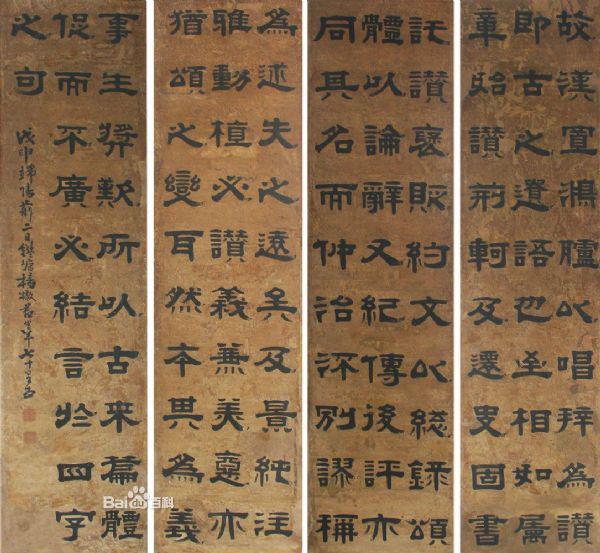 故漢置鴻臚以唱拜為讚
即古之遺語也至相如屬
始讚荊軻及遷史固書
託讚褒貶約文以總錄頌
體以論辭又紀傳後評亦
同其名而仲洽流別謬稱
為述失之遠矣及景純注
雅動植必讚義兼美惡亦
猶頌之變耳然本其為義
事生獎歎所以古來篇體
促而不廣必結言於四字
之句
戊申端陽前二日錢塘楊書年七十
Bai百科